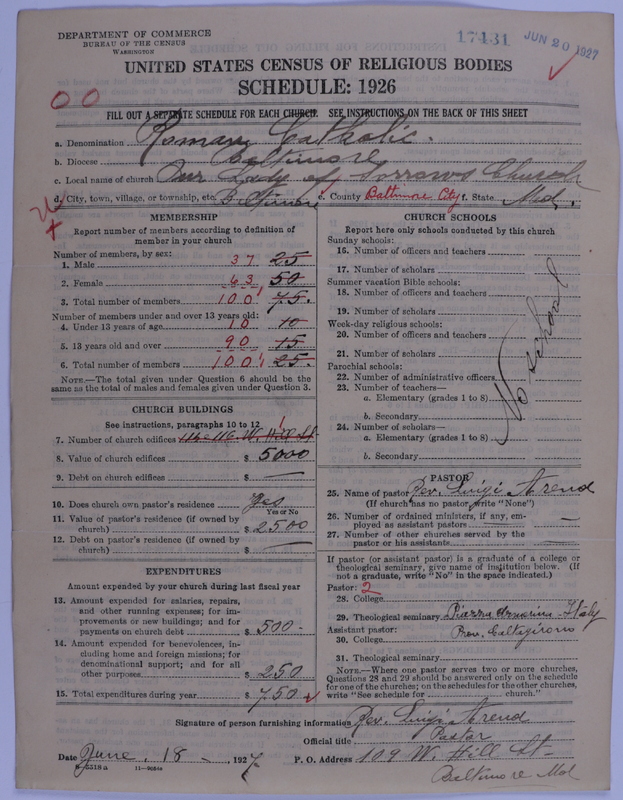 DEPARTMENT OF COMMERCE
BUREAU OF THE CENSUS
WASHINGTON
17431
JUN 20 1927
UNITED STATES CENSUS OF RELIGIOUS BODIES
SCHEDULE: 1926
00
FILL OUT A SEPARATE SCHEDULE FOR EACH CHURCH. SEE INSTRUCTIONS ON THE BACK OF THIS SHEET
a. Denomination Roman Catholic.
b. Diocese Baltimore
c. Local name of church Our Lady of Sorrows Church
d. City, town, village, or township, etc. Baltimore e. County Baltimore City f. State Md.
MEMBERSHIP
Report number of members according to definition of member in your church
Number of members, by sex:
1. Male 37 25
2. Female 63 50
3. Total number of members 100 75.
Number of members under and over 13 years old:
4. Under 13 years of age 10 10
5. 13 years old and over 90 15
6. Total number of members 100 25.
NOTE.—The total given under Question 6 should be the same as the total of males and females given under Question 3.
CHURCH BUILDINGS
See instructions, paragraphs 10 to 12
7. Number of church edifices 114-116 W. Hill St. 1
8. Value of church edifices $ 5000
9. Debt on church edifices $ —
10. Does church own pastor's residence Yes
Yes or No
11. Value of pastor's residence (if owned by church) $ 2500
12. Debt on pastor's residence (if owned by church) $ —
EXPENDITURES
Amount expended by your church during last fiscal year
13. Amount expended for salaries, repairs, and other running expenses; for improvements or new buildings; and for payments on church debt $ 500-
14. Amount expended for benevolences, including home and foreign missions; for denominational support; and for all other purposes $ 250
15. Total expenditures during year $ 750
CHURCH SCHOOLS
Report here only schools conducted by this church
Sunday schools:
16. Number of officers and teachers
17. Number of scholars
Summer vacation Bible schools:
18. Number of officers and teachers
19. Number of scholars
Week-day religious schools:
20. Number of officers and teachers
21. Number of scholars
Parochial schools:
22. Number of administrative officers
23. Number of teachers—
a. Elementary (grades 1 to 8)
b. Secondary
24. Number of scholars—
a. Elementary (grades 1 to 8)
b. Secondary
No school
PASTOR
25. Name of pastor Rev. Luigi Arena
(If church has no pastor write "None")
26. Number of ordained ministers, if any, employed as assistant pastors —
27. Number of other churches served by the pastor or his assistants —
If pastor (or assistant pastor) is a graduate of a college or theological seminary, give name of institution below. (If not a graduate, write "No" in the space indicated.)
Pastor: 2
28. College
29. Theological seminary Piazza Armerina-Italy
Assistant pastor: Prov. Caltagirone
30. College
31. Theological seminary
NOTE.—Where one pastor serves two or more churches, Questions 28 and 29 should be answered only on the schedule for one of the churches; on the schedules for the other churches, write "See schedule for church."
Signature of person furnishing information Rev. Luigi Arena
Official title Pastor
Date June 18 -, 1927 P. O. Address 109 W. Hill St-
8-5518a
Baltimore Md